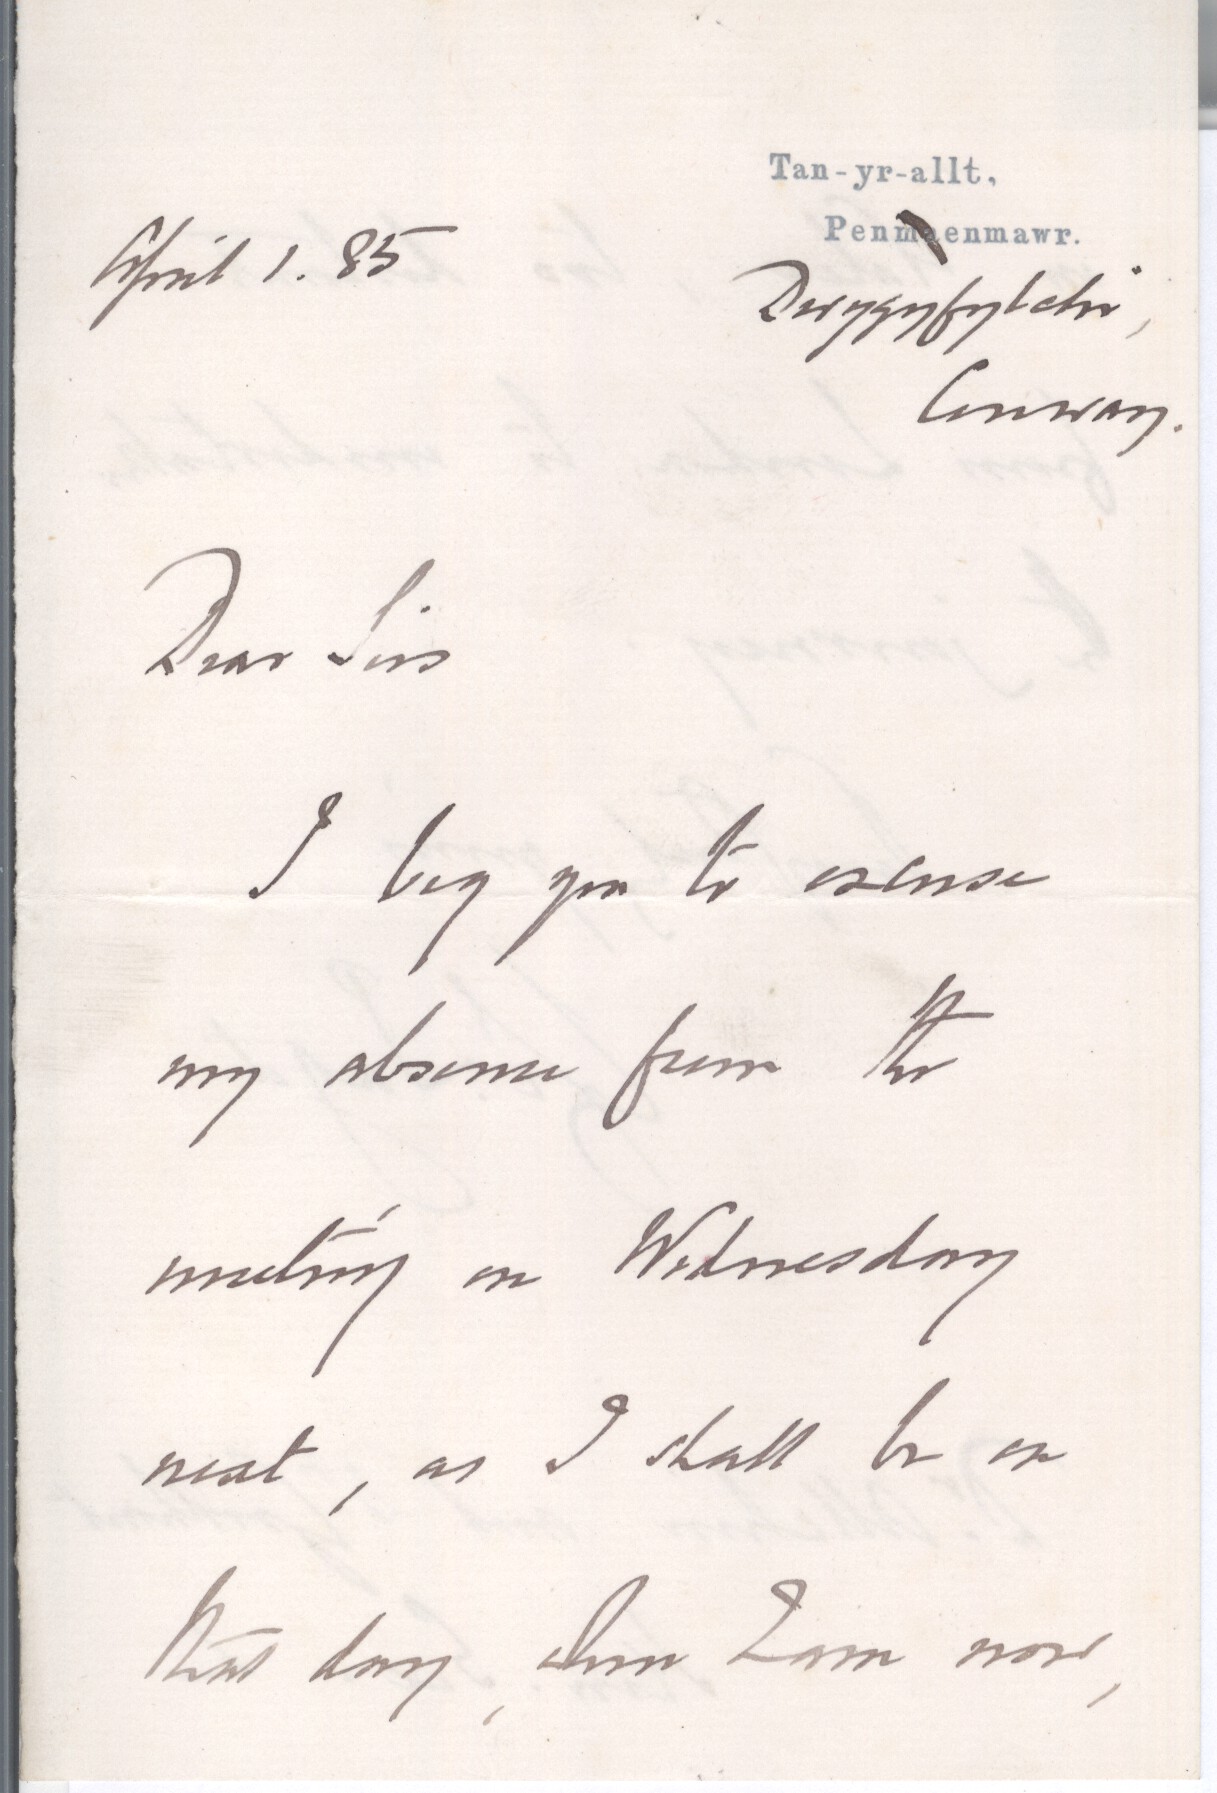 Tan-yr-allt,
Penmaenmawr.
April 1. 85
Dwygyfylchi,
Conway.
Dear Sirs
I beg you to excuse
my absence from the
meeting on Wednesday
next, as I shall be on
that day, when I am now,